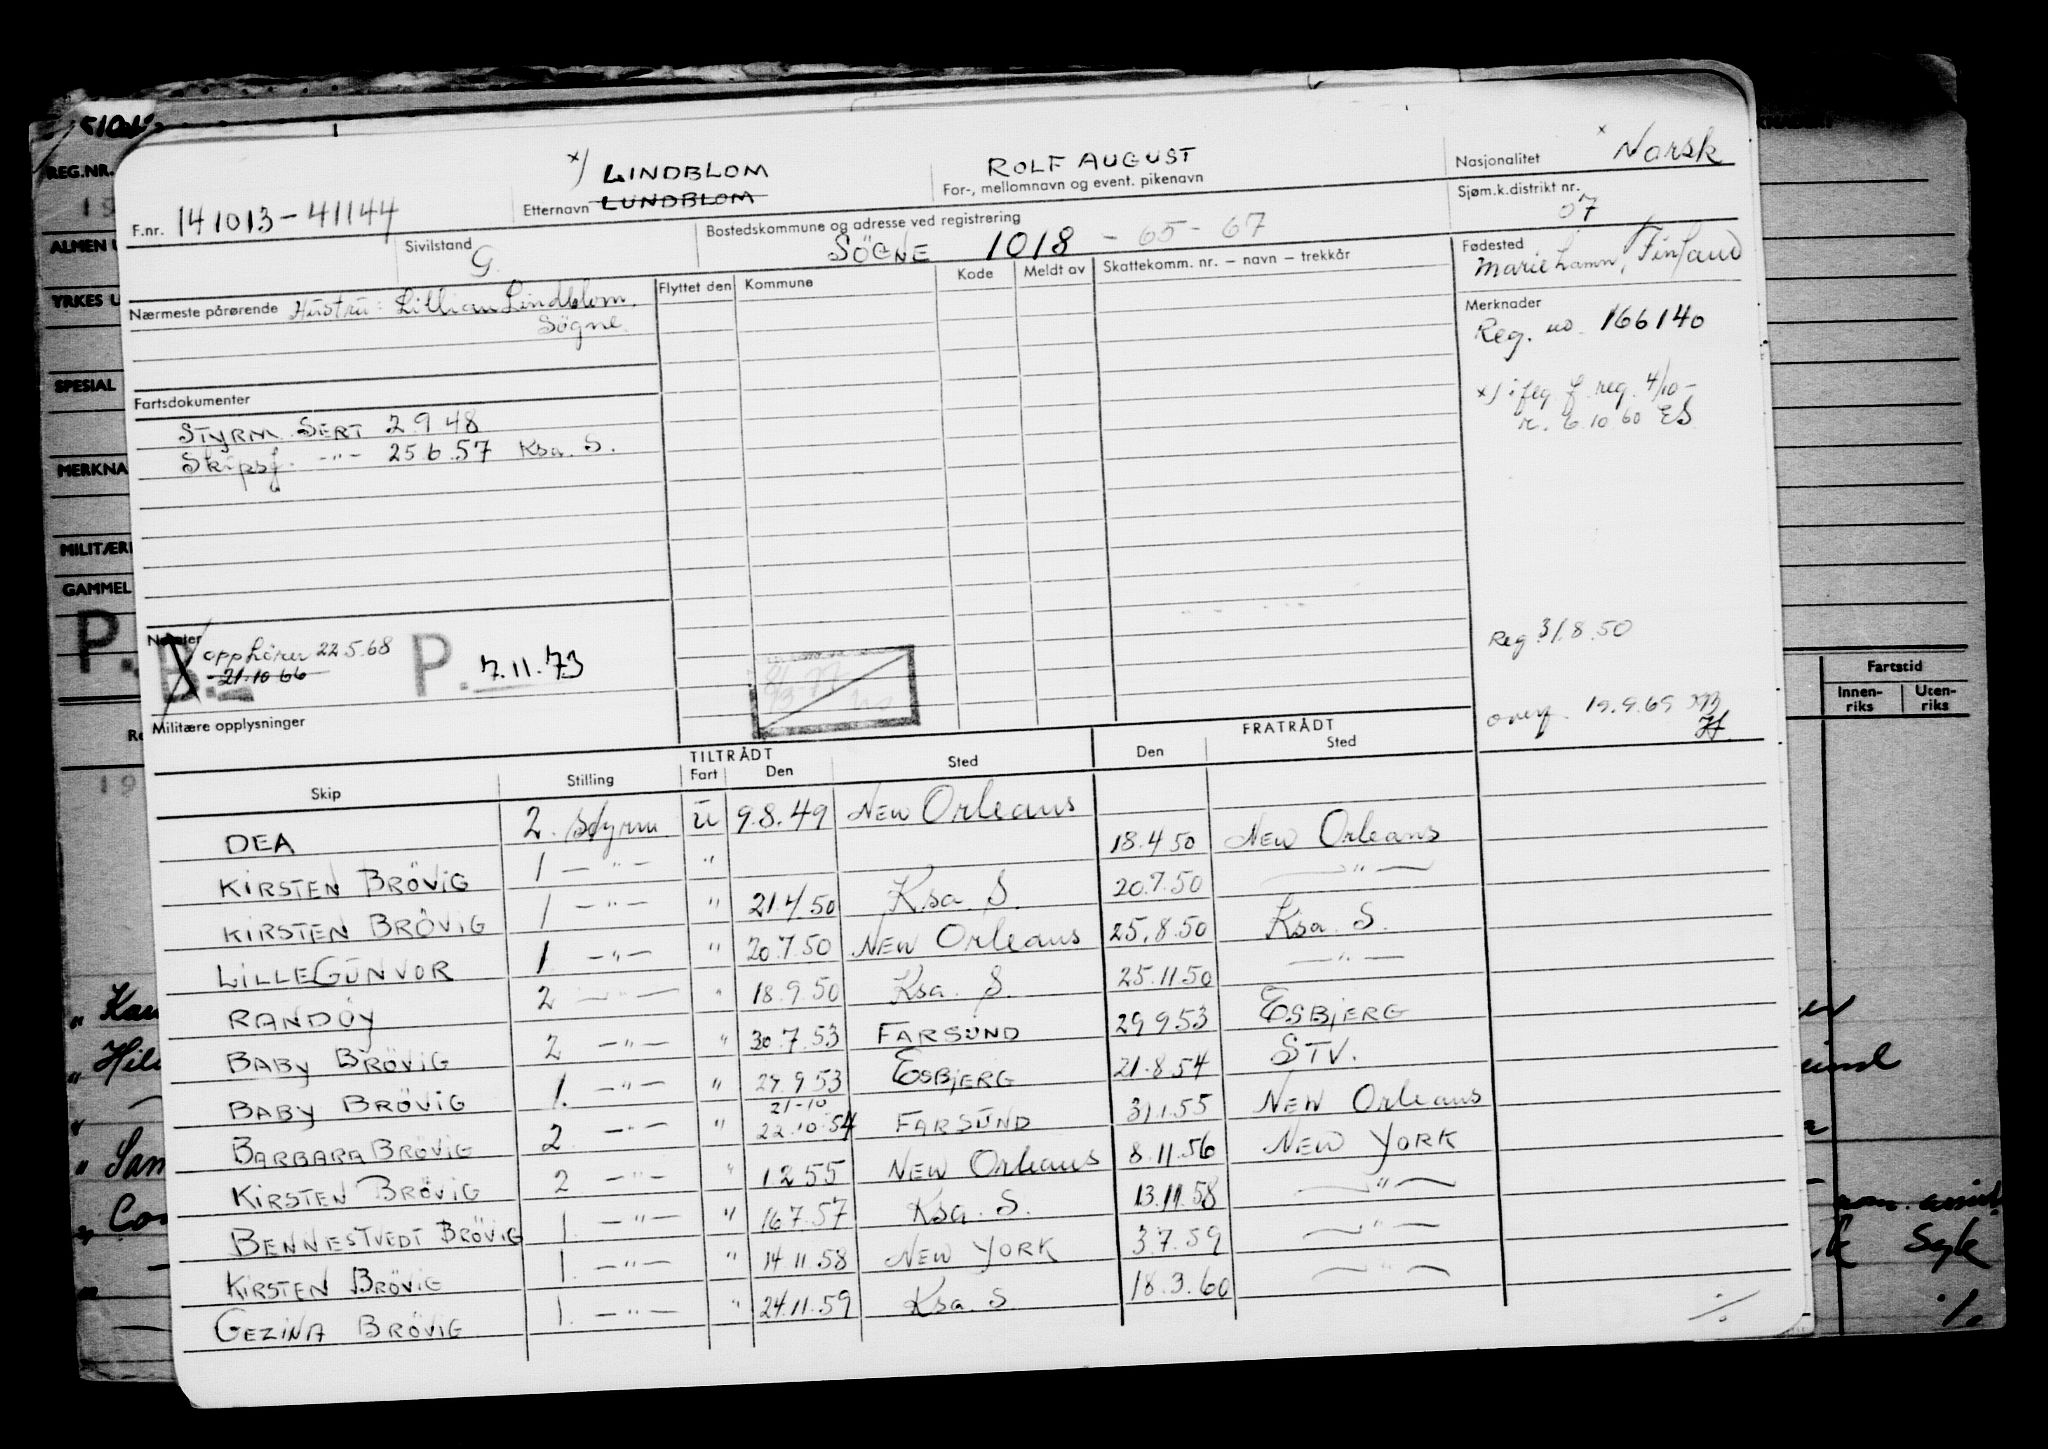 x) LINDBLOM ROLF AUGUST x Norsk
F.nr. 141013-41144 Etternavn LUNDBLOM For-, mellomnavn og event. pikenavn Nasjonalitet
Sivilstand G. Bostedskommune og adresse ved registrering SÖGNE 1018 - 65 - 67 Sjøm.k.distrikt nr. 07
Nærmeste pårørende Hustru: Lillian Lindblom, Flyttet den Kommune Kode Meldt av Skattekomm. nr. – navn – trekkår Fødested Mariehamn, Finland
Søgne
Merknader
Reg. no. 166140
Fartsdokumenter
x) i flg f. reg. 4/10-
STYRM. SERT 2.9.48
r. 6.10.60 ES
Skipsf. -"- 25.6.57 Ksa. S.
Reg 31.8.50
Notater
B. opphörer 22.5.68 P. 7.11.73
21.10 66
overf. 19.9.69
Militære opplysninger
TILTRÅDT FRATRÅDT
Skip Stilling Fart Den Sted Den Sted
DEA 2. styrm u 9.8.49 NEW Orleans
KIRSTEN BRÖVIG 1 -"- " 18.4.50 NEW Orleans
KIRSTEN BRÖVIG 1 -"- " 21.4.50 Ksa. S. 20.7.50 -"-
LILLEGUNVOR 1 -"- " 20.7.50 NEW Orleans 25.8.50 Ksa. S.
RANDÖY 2 -"- " 18.9.50 Ksa. S. 25.11.50 -"-
BABY BRÖVIG 2 -"- " 30.7.53 FARSUND 29.9.53 ESBJERG
BABY BRÖVIG 1. -"- " 29.9.53 ESBJERG 21.8.54 STV.
21-10
BARBARA BRÖVIG 2 -"- " 22.10.54 FARSUND 31.1.55 NEW Orleans
KIRSTEN BRÖVIG 2 -"- " 1.2.55 NEW Orleans 8.11.56 NEW YORK
BENNESTVEDT BRÖVIG 1. -"- " 16.7.57 Ksa. S. 13.11.58 -"-
KIRSTEN BRÖVIG 1. -"- " 14.11.58 NEW YORK 3.7.59 -"-
GEZINA BRÖVIG 1. -"- " 24.11.59 Ksa. S 18.3.60 -"-
./.
REG.NR.
ALMEN U
YRKES U
SPESIAL
MERKNA
MILITÆR
GAMMEL
P.
Fartstid
Innen-
riks
Uten-
riks
Syk
./.